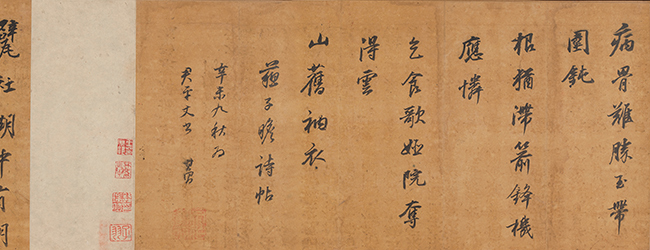 病骨難勝玉帶
圍鈍
根猶滯箭鋒機
應憐
乞食歌姬院奪
得雲
山舊衲衣
蘇子瞻詩帖
辛未九秋為
君平丈書
甓社湖中有明